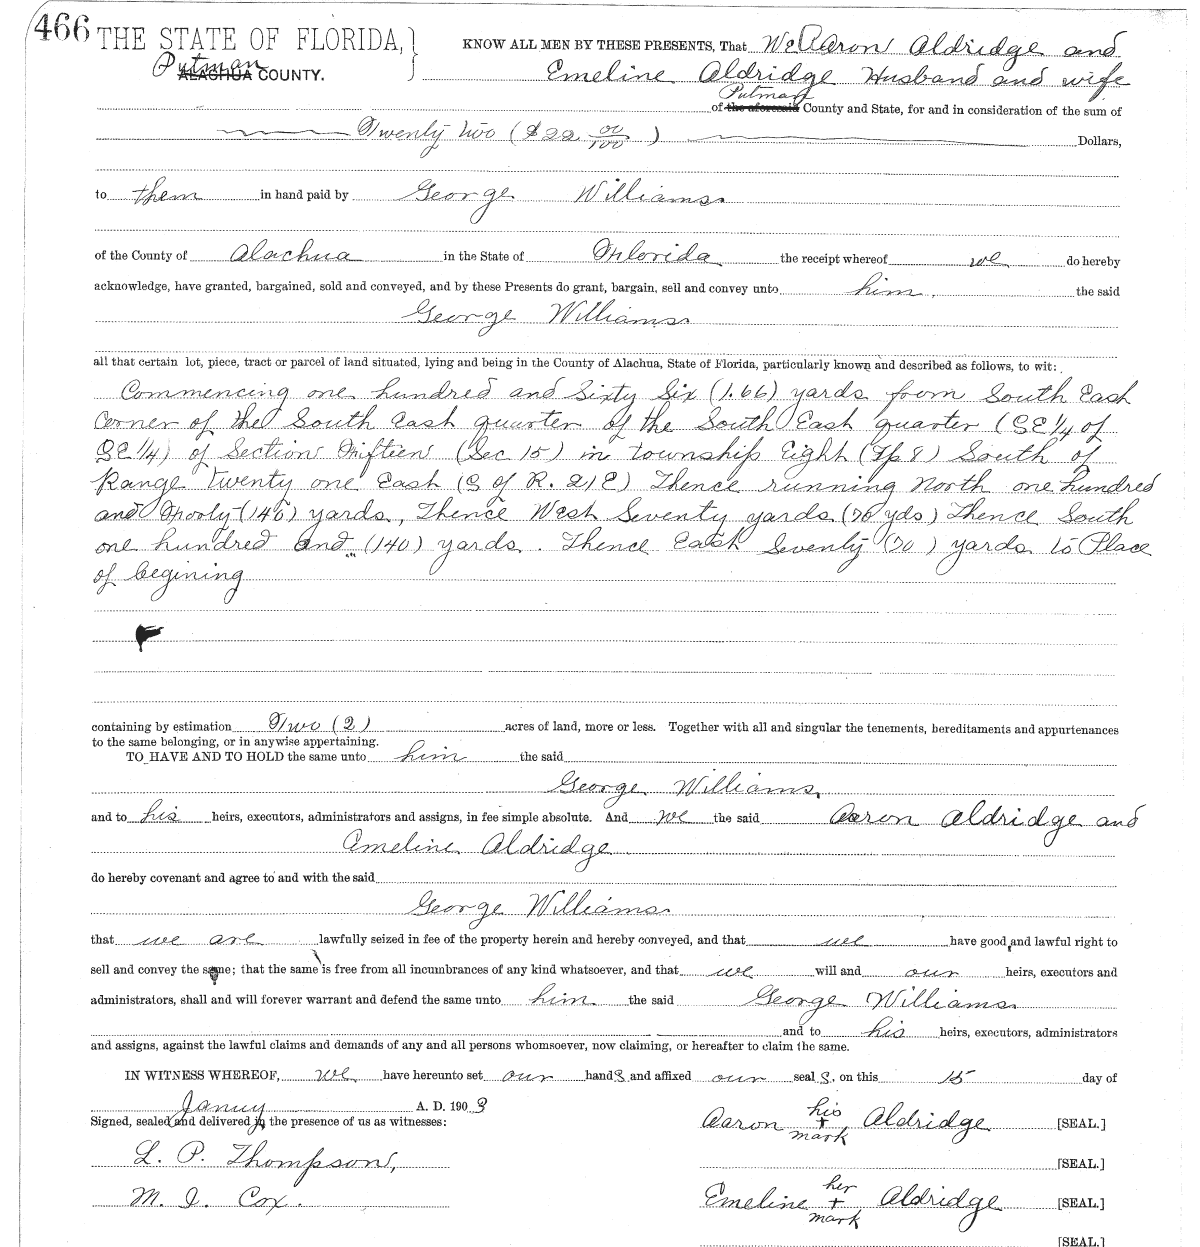 466 THE STATE OF FLORIDA,
Putman
ALACHUA COUNTY.
KNOW ALL MEN BY THESE PRESENTS, That We Aaron Aldridge and
Emeline Aldridge Husband and wife
Putman
of the aforesaid County and State, for and in consideration of the sum of
Twenty two ($22 00/100 ) Dollars,
to them in hand paid by George Williams
of the County of Alachua in the State of Florida the receipt whereof we do hereby
acknowledge, have granted, bargained, sold and conveyed, and by these Presents do grant, bargain, sell and convey unto him, the said
George Williams
all that certain lot, piece, tract or parcel of land situated, lying and being in the County of Alachua, State of Florida, particularly known and described as follows, to wit:
Commencing one hundred and Sixty Six (1.66) yards from South East
Corner of the South East quarter of the South East quarter (SE 1/4 of
SE 1/4) of Section Fifteen (Sec 15) in township Eight (Tp 8) South of
Range Twenty one East (S of R. 21 E) Thence running North one hundred
and (140) yards, Thence West Seventy yards (70 yds) Thence South
one hundred and (140) yards. Thence East Seventy (70) yards to Place
of begining
containing by estimation Two (2) acres of land, more or less. Together with all and singular the tenements, hereditaments and appurtenances
to the same belonging, or in anywise appertaining.
TO HAVE AND TO HOLD the same unto him the said
George Williams,
and to his heirs, executors, administrators and assigns, in fee simple absolute. And we the said Aaron Aldridge and
Emeline Aldridge
do hereby covenant and agree to and with the said
George Williams
that we are lawfully seized in fee of the property herein and hereby conveyed, and that we have good and lawful right to
sell and convey the same; that the same is free from all incumbrances of any kind whatsoever, and that we will and our heirs, executors and
administrators, shall and will forever warrant and defend the same unto him the said George Williams
and to his heirs, executors, administrators
and assigns, against the lawful claims and demands of any and all persons whomsoever, now claiming, or hereafter to claim the same.
IN WITNESS WHEREOF, we have hereunto set our hands and affixed our seal s, on this 15 day of
Janury A. D. 190 3
Signed, sealed and delivered in the presence of us as witnesses:
his
Aaron + Aldridge [SEAL.]
mark
L. P. Thompson, [SEAL.]
her
M. I. Cox. Emeline + Aldridge [SEAL.]
mark
[SEAL.]